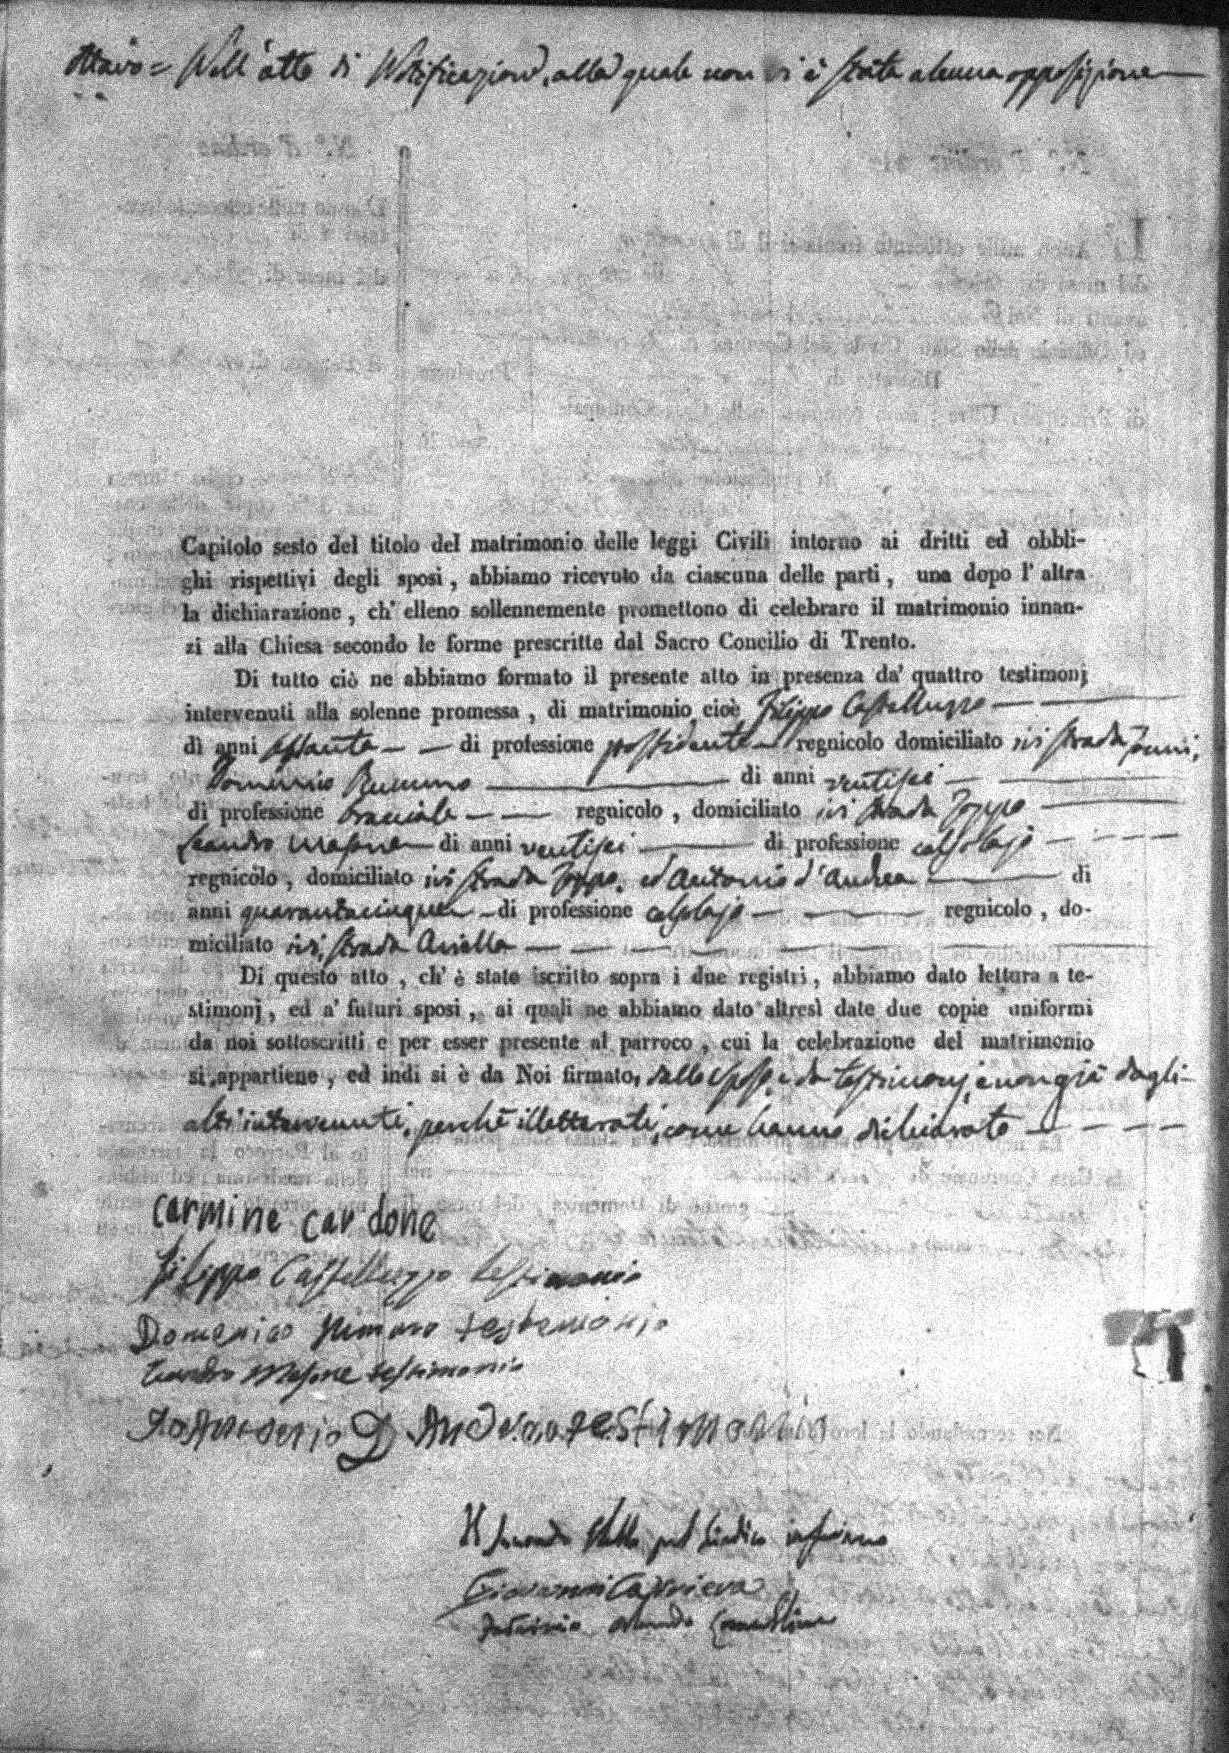 Ottavo = Nell'atto di Notificazione, alla quale non vi è stata alcuna opposizione
Capitolo sesto del titolo del matrimonio delle leggi Civili intorno ai dritti ed obbli-
ghi rispettivi degli sposi, abbiamo ricevuto da ciascuna delle parti, una dopo l'altra
la dichiarazione, ch'elleno sollennemente promettono di celebrare il matrimonio innan-
zi alla Chiesa secondo le forme prescritte dal Sacro Concilio di Trento.
Di tutto ciò ne abbiamo formato il presente atto in presenza da' quattro testimonj
intervenuti alla solenne promessa, di matrimonio cioè Filippo Castelluzzo
di anni settanta di professione possidente regnicolo domiciliato ivi strada
Domenico di anni ventisei
di professione bracciale regnicolo, domiciliato ivi strada Zoppo
Leandro Masone di anni ventisei di professione calzolajo
regnicolo, domiciliato ivi strada Zoppo, ed Antonio d'Andrea di
anni quarantacinque di professione calzolajo regnicolo, do-
miciliato ivi, strada
Di questo atto, ch'è stato iscritto sopra i due registri, abbiamo dato lettura a te-
stimonj, ed a' futuri sposi, ai quali ne abbiamo dato altresì date due copie uniformi
da noi sottoscritti e per esser presente al parroco, cui la celebrazione del matrimonio
si appartiene, ed indi si è da Noi firmato, dallo sposo, e da testimonj, e non già dagli
altri intervenuti, perchè illetterati, come hanno dichiarato
Carmine Cardone
Filippo Castelluzzo testimonio
Domenico testemonio
Leandro Masone testimonio
D Andrea testimonio
Il secondo Eletto pel Sindico infermo
Giovanni